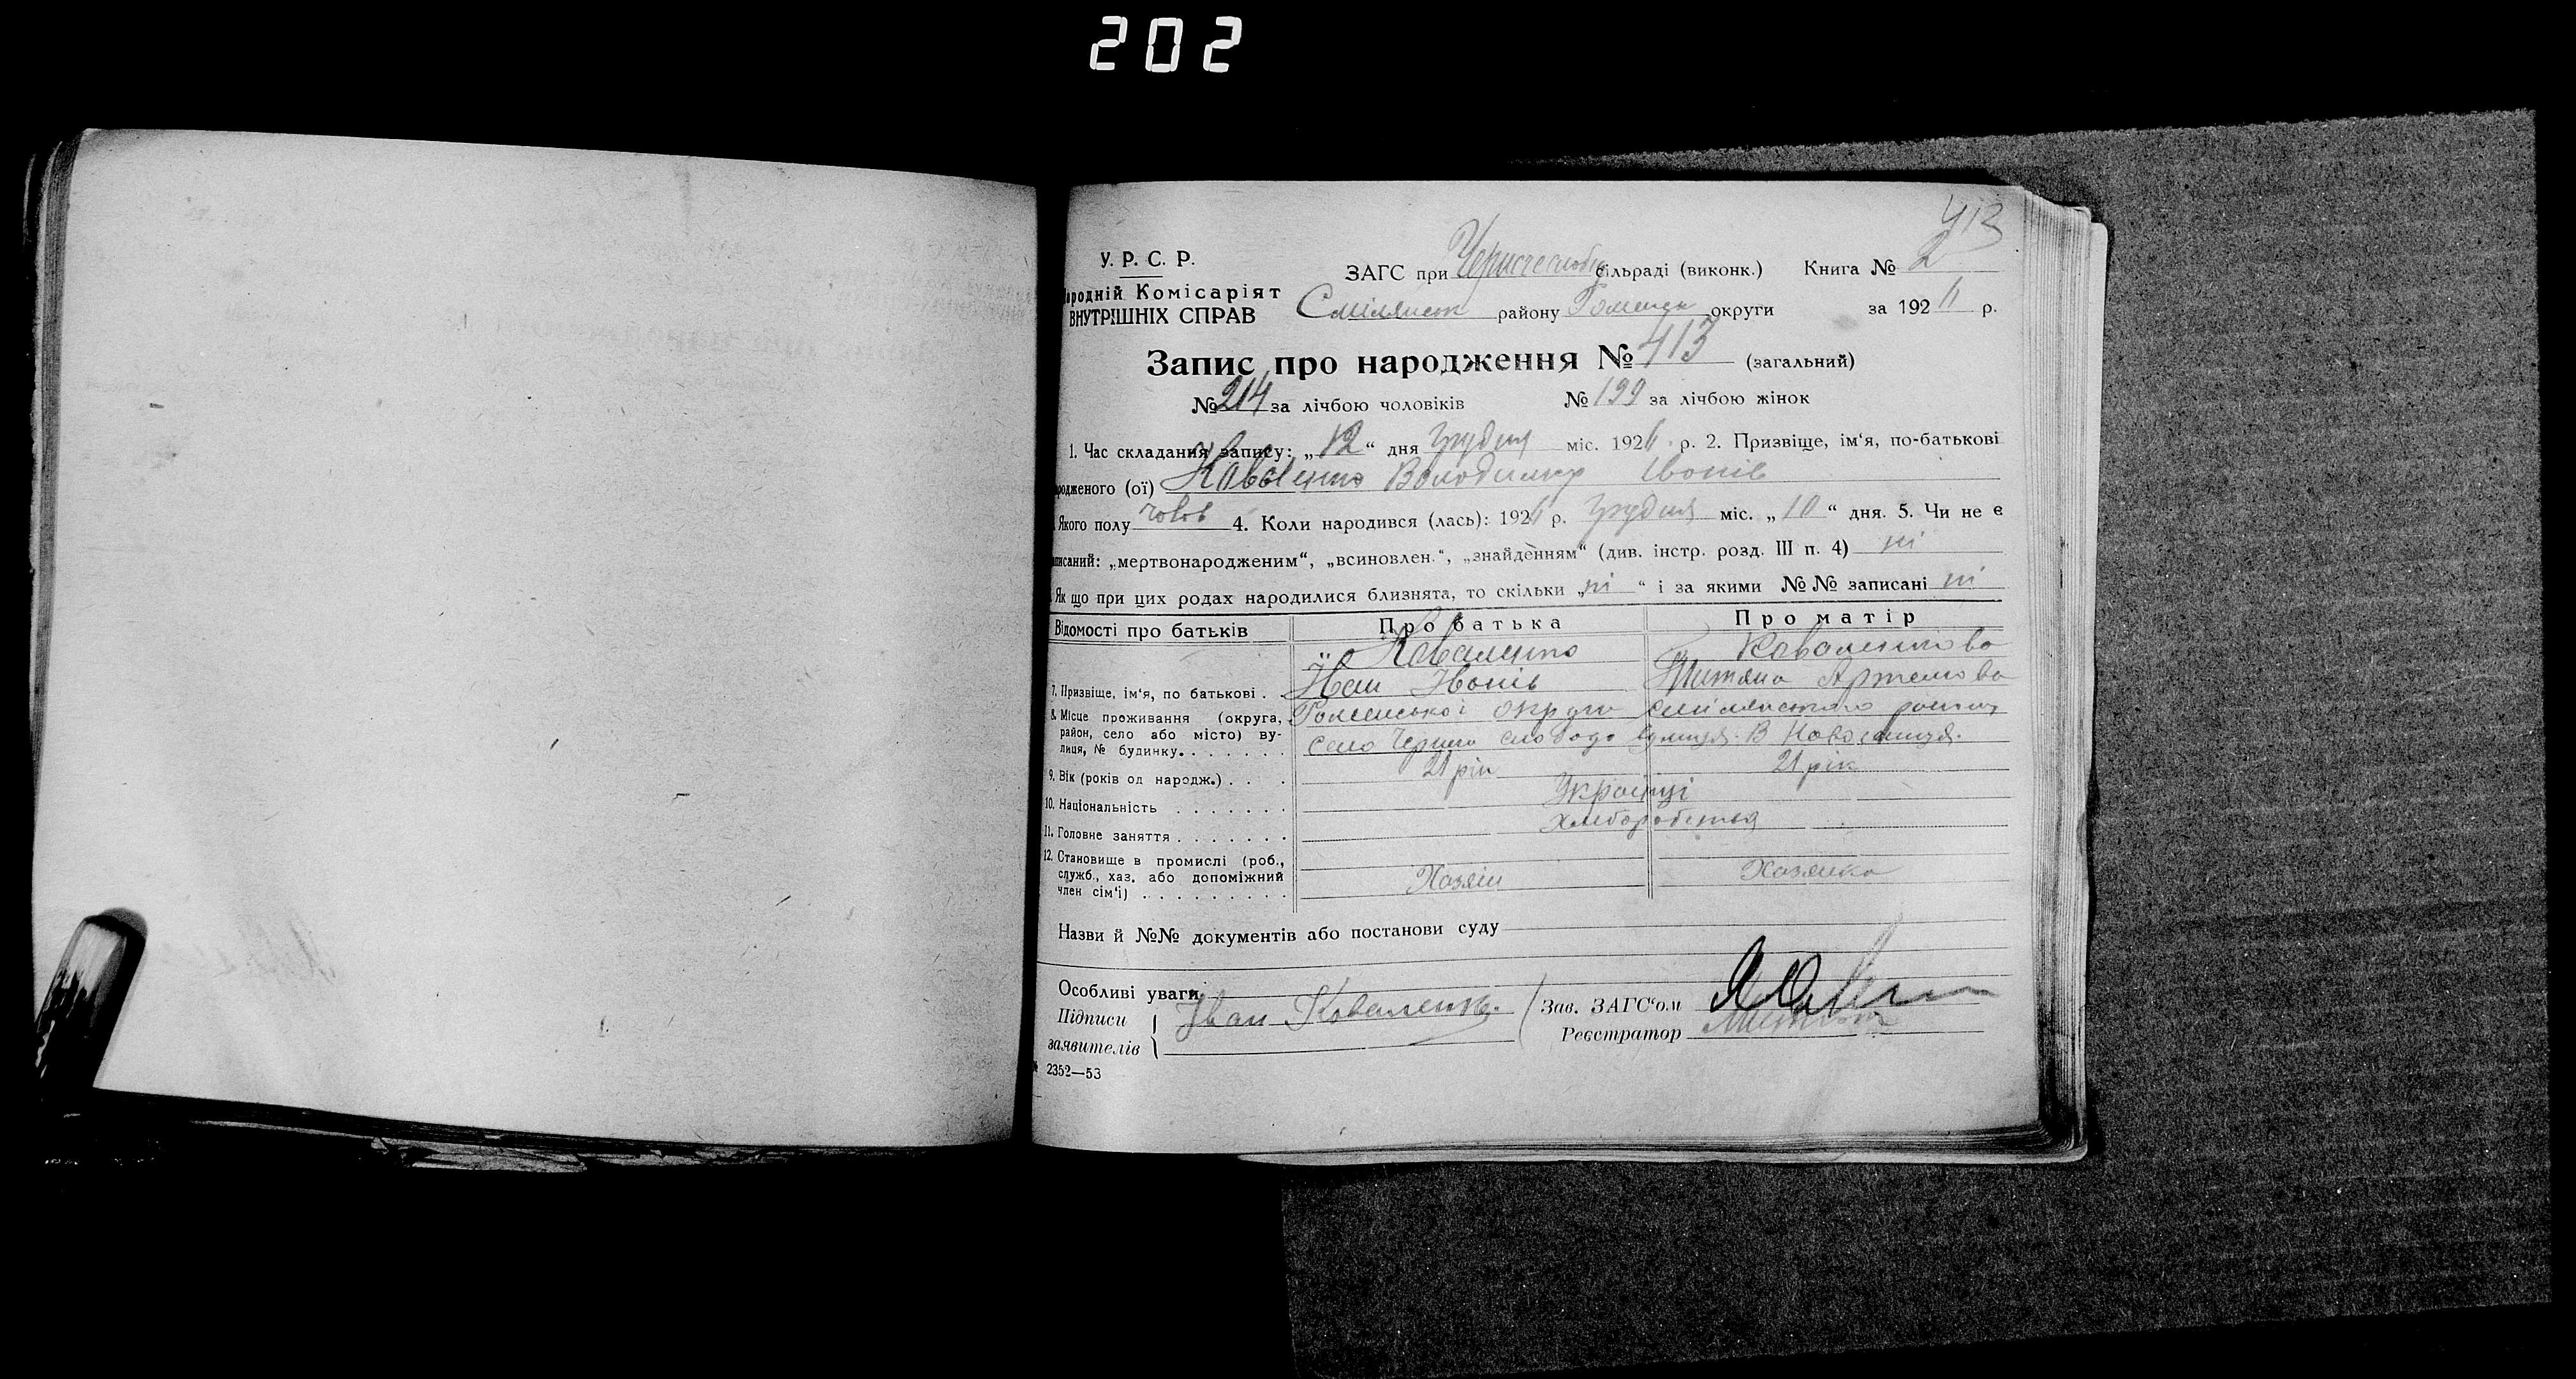 202
413
У. Р. С. Р.
ародній Комісаріят
ВНУТРІШНІХ СПРАВ
ЗАГС при сільраді (виконк.) Книга № 2
Смілянськ району Роменськ округи за 192 р.
Запис про народження № 413 (загальний)
№ 214 за лічбою чоловіків № 199 за лічбою жінок
1. Час складання запису: „12“ дня Грудня міс. 192 р. 2. Призвіще, ім‘я, по-батькові
родженого (ої) Коваленко Володимир Іванів
Якого полу чолов 4. Коли народився (лась): 192 р. Грудня міс. „10“ дня. 5. Чи не є
писаний: „мертвонародженим“, „всиновлен.“, „знайденням“ (див. інстр. розд. III п. 4) ні
Як що при цих родах народилися близнята, то скільки „ні“ і за якими №№ записані ні
Відомості про батьків Про батька Про матір
Коваленко Коваленкова
7. Призвіще, ім‘я, по батькові . . Іван Іванів Титяна Артемова
8. Місце проживання (округа, Роменської округи Смілянського району
район, село або місто) ву-
лиця, № будинку. . . . . . . село Черни слобода вулиця В Новоселиця.
9. Вік (років од народж.) . . . 21 рік 21 рік
10. Національність . . . . . . . Українці
11. Головне заняття . . . . . . . Хліборобства
12. Становище в промислі (роб.,
служб., хаз. або допоміжний Хозяін Хозяйка
член сім‘ї) . . . . . . . . .
Назви й №№ документів або постанови суду
Особливі уваги
Підписи Іван Коваленко. Зав. ЗАГС‘ом
заявителів Реєстратор
№ 2352—53